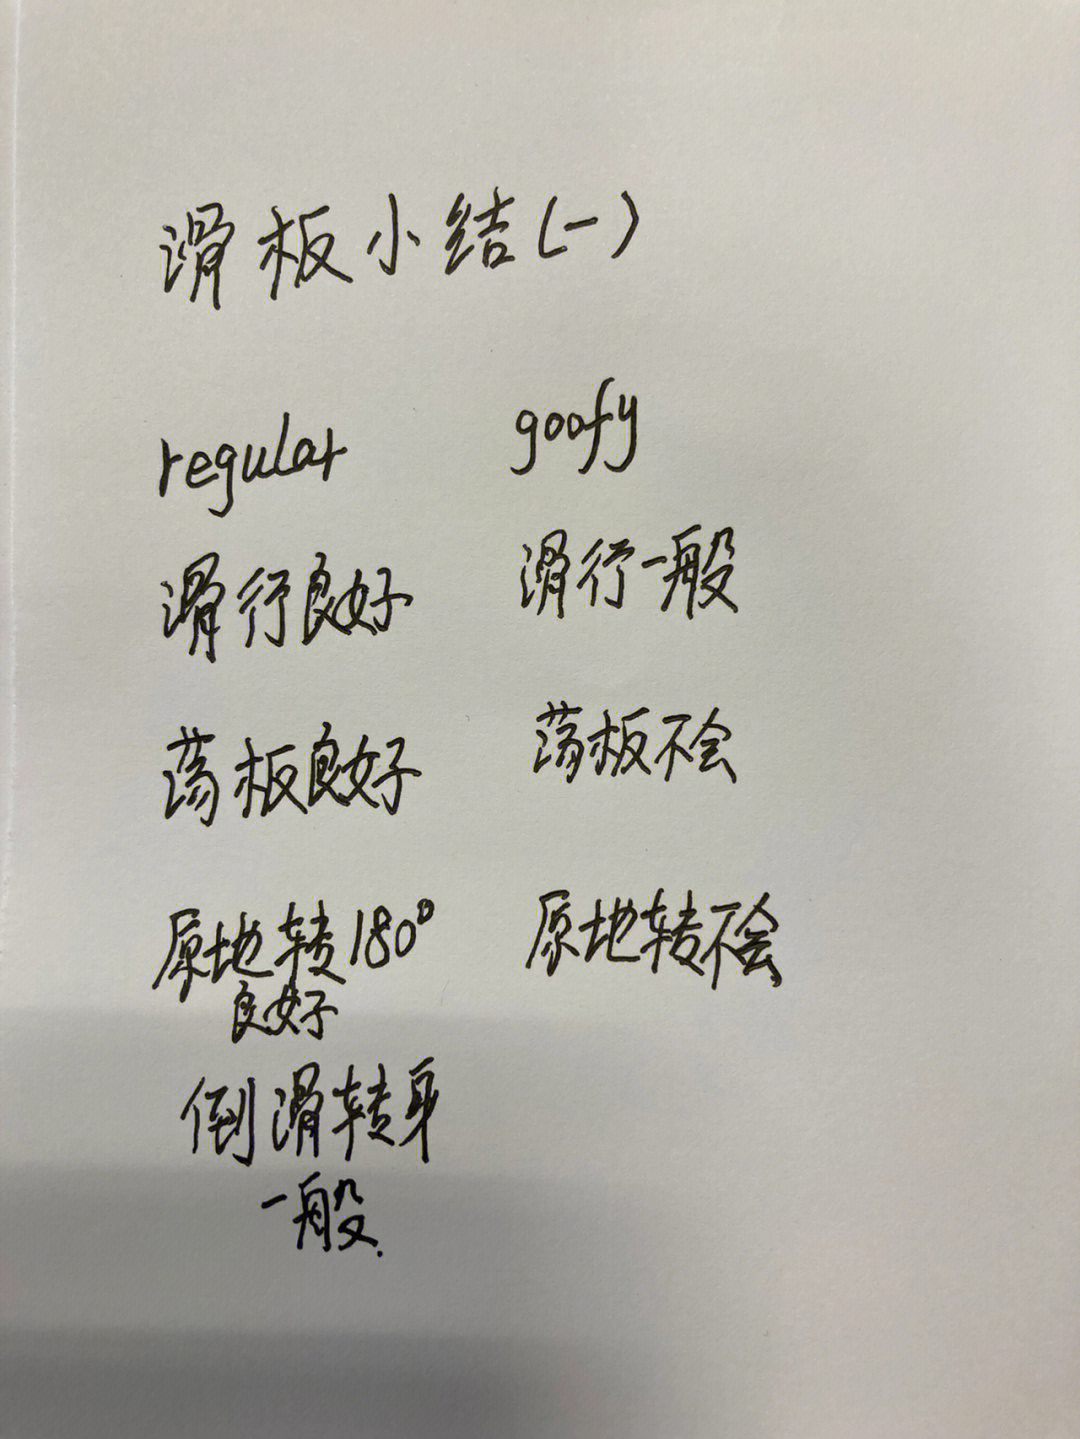 滑板小结(一)
regular goofy
滑行良好 滑行一般
荡板良好 荡板不会
原地转180° 原地转不会
良好
倒滑转身
一般.